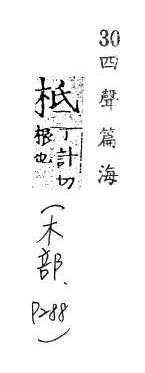 30四聲篇海
柢
丁計切
根也
(木部、P288)